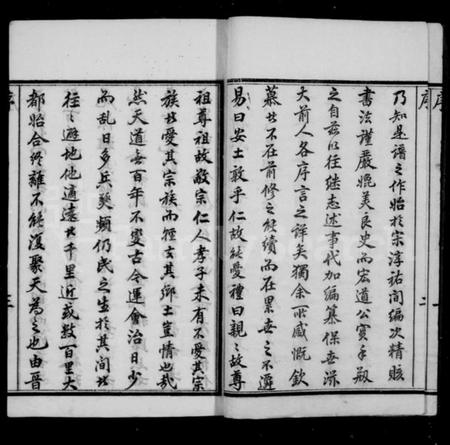 序
乃知是譜之作始於宗淳祐間編次精賅
書法謹嚴媲美良史而宏道公實手剏
之自茲以往継志述事代加編纂保世滋
大前人各序言之詳矣獨余所感慨欽
慕者不在前修之能續而在累世之不遷
易曰安土敦乎仁故能愛禮曰親親故尊
二
祖尊祖故敬宗仁人孝子未有不愛其宗
族者愛其宗族而輕去其鄉土豈情也哉
然天道無百年不變古今運會治日少
而乱日多兵燹頻仍民之生於其間者
往往避地他適遠者千里近或數百里大
都始合終離不能復聚天為之也由晉
三